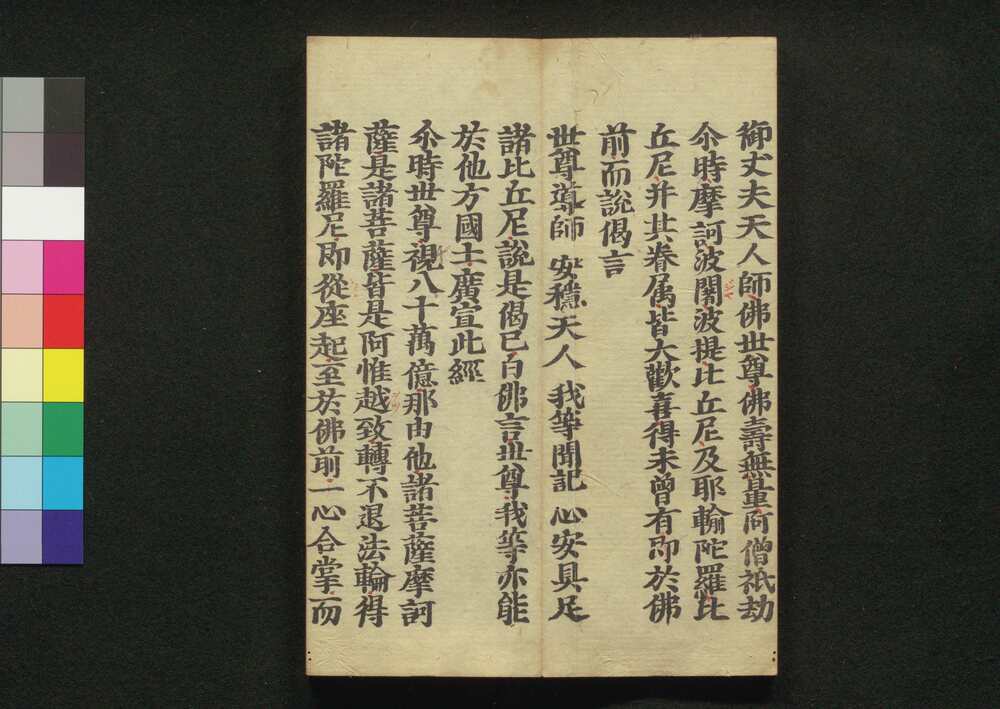 御丈夫天人師佛世尊佛壽無量阿僧祇劫
尒時摩訶波闍波提比丘尼及耶輸陀羅比
丘尼并其眷属皆大歡喜得未曾有即於佛
前而說偈言
世尊導師 安穩天人 我等聞記 心安具足
諸比丘尼說是偈已白佛言世尊我等亦能
於他方國土廣宣此經
尒時世尊視八十萬億那由他諸菩薩摩訶
薩是諸菩薩皆是阿惟越致轉不退法輪得
諸陀羅尼即從座起至於佛前一心合掌而